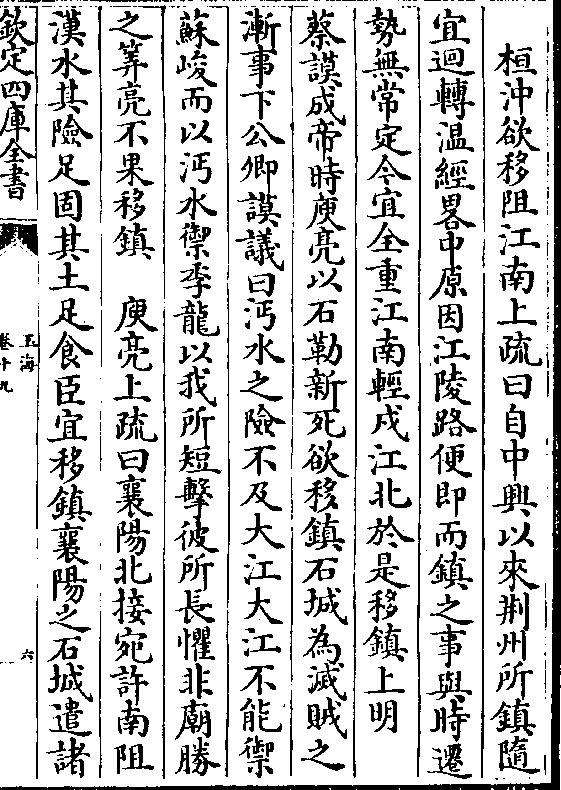 桓沖欲移阻江南上疏曰自中興以來荆州所鎮隨
宜迴轉温經畧中原因江陵路便即而鎮之事與時遷
勢無常定今宜全重江南輕戍江北於是移鎮上明
蔡謨成帝時庾亮以石勒新死欲移鎮石城為滅賊之
漸事下公卿謨議曰沔水之險不及大江大江不能禦
蘇峻而以沔水禦季龍以我所短擊彼所長懼非廟勝
之筭亮不果移鎮　庾亮上疏曰襄陽北接宛許南阻
漢水其險足固其土足食臣宜移鎮襄陽之石城遣諸
欽定四庫全書
玉海
卷十九
六